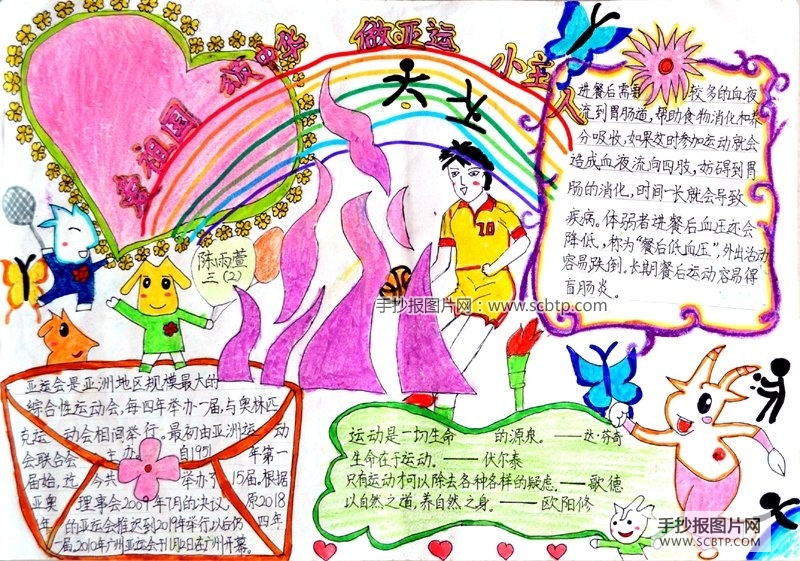 爱祖国 颂中华 做亚运 小主人
进餐后需要 较多的血液
流到胃肠道,帮助食物消化和养
分吸收,如果这时参加运动就会
造成血液流向四肢,妨碍到胃
肠的消化,时间一长就会导致
疾病。体弱者进餐后血压还会
降低,称为“餐后低血压”,外出活动
容易跌倒。长期餐后运动容易得
盲肠炎。
陈雨萱
三(2)
10
手抄报图片网:www.scbtp.com
亚运会是亚洲地区规模最大的
综合性运动会,每四年举办一届,与奥林匹
克运 动会相间举行。最初由亚洲运 动
会联合会 主办 自1951 年第一
届始,迄 今共 举办了 15届。根据
亚奥 理事会2009年7月的决议, 原2018
年 的亚运会推迟到2019年举行以后仍 四年
一届。2010年广州亚运会于11月12日在广州开幕。
运动是一切生命 的源泉。——达·芬奇
生命在于运动。——伏尔泰
只有运动才可以除去各种各样的疑虑。——歌德
以自然之道,养自然之身。——欧阳修
手抄报图片网
www.scbtp.com